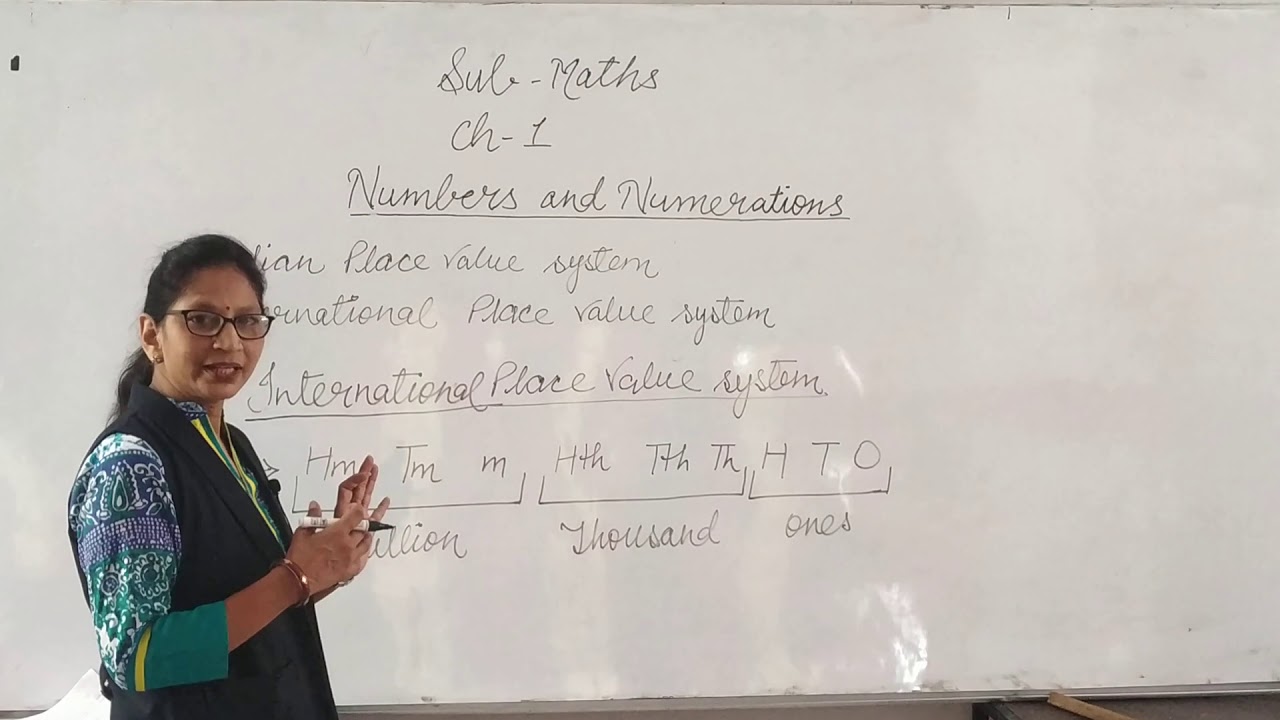 Sub-Maths
Ch-1
Numbers and Numerations
Place Value system
Place Value system
International Place Value system
Hm Tm m Hth Tth Th H T O
Thousand ones